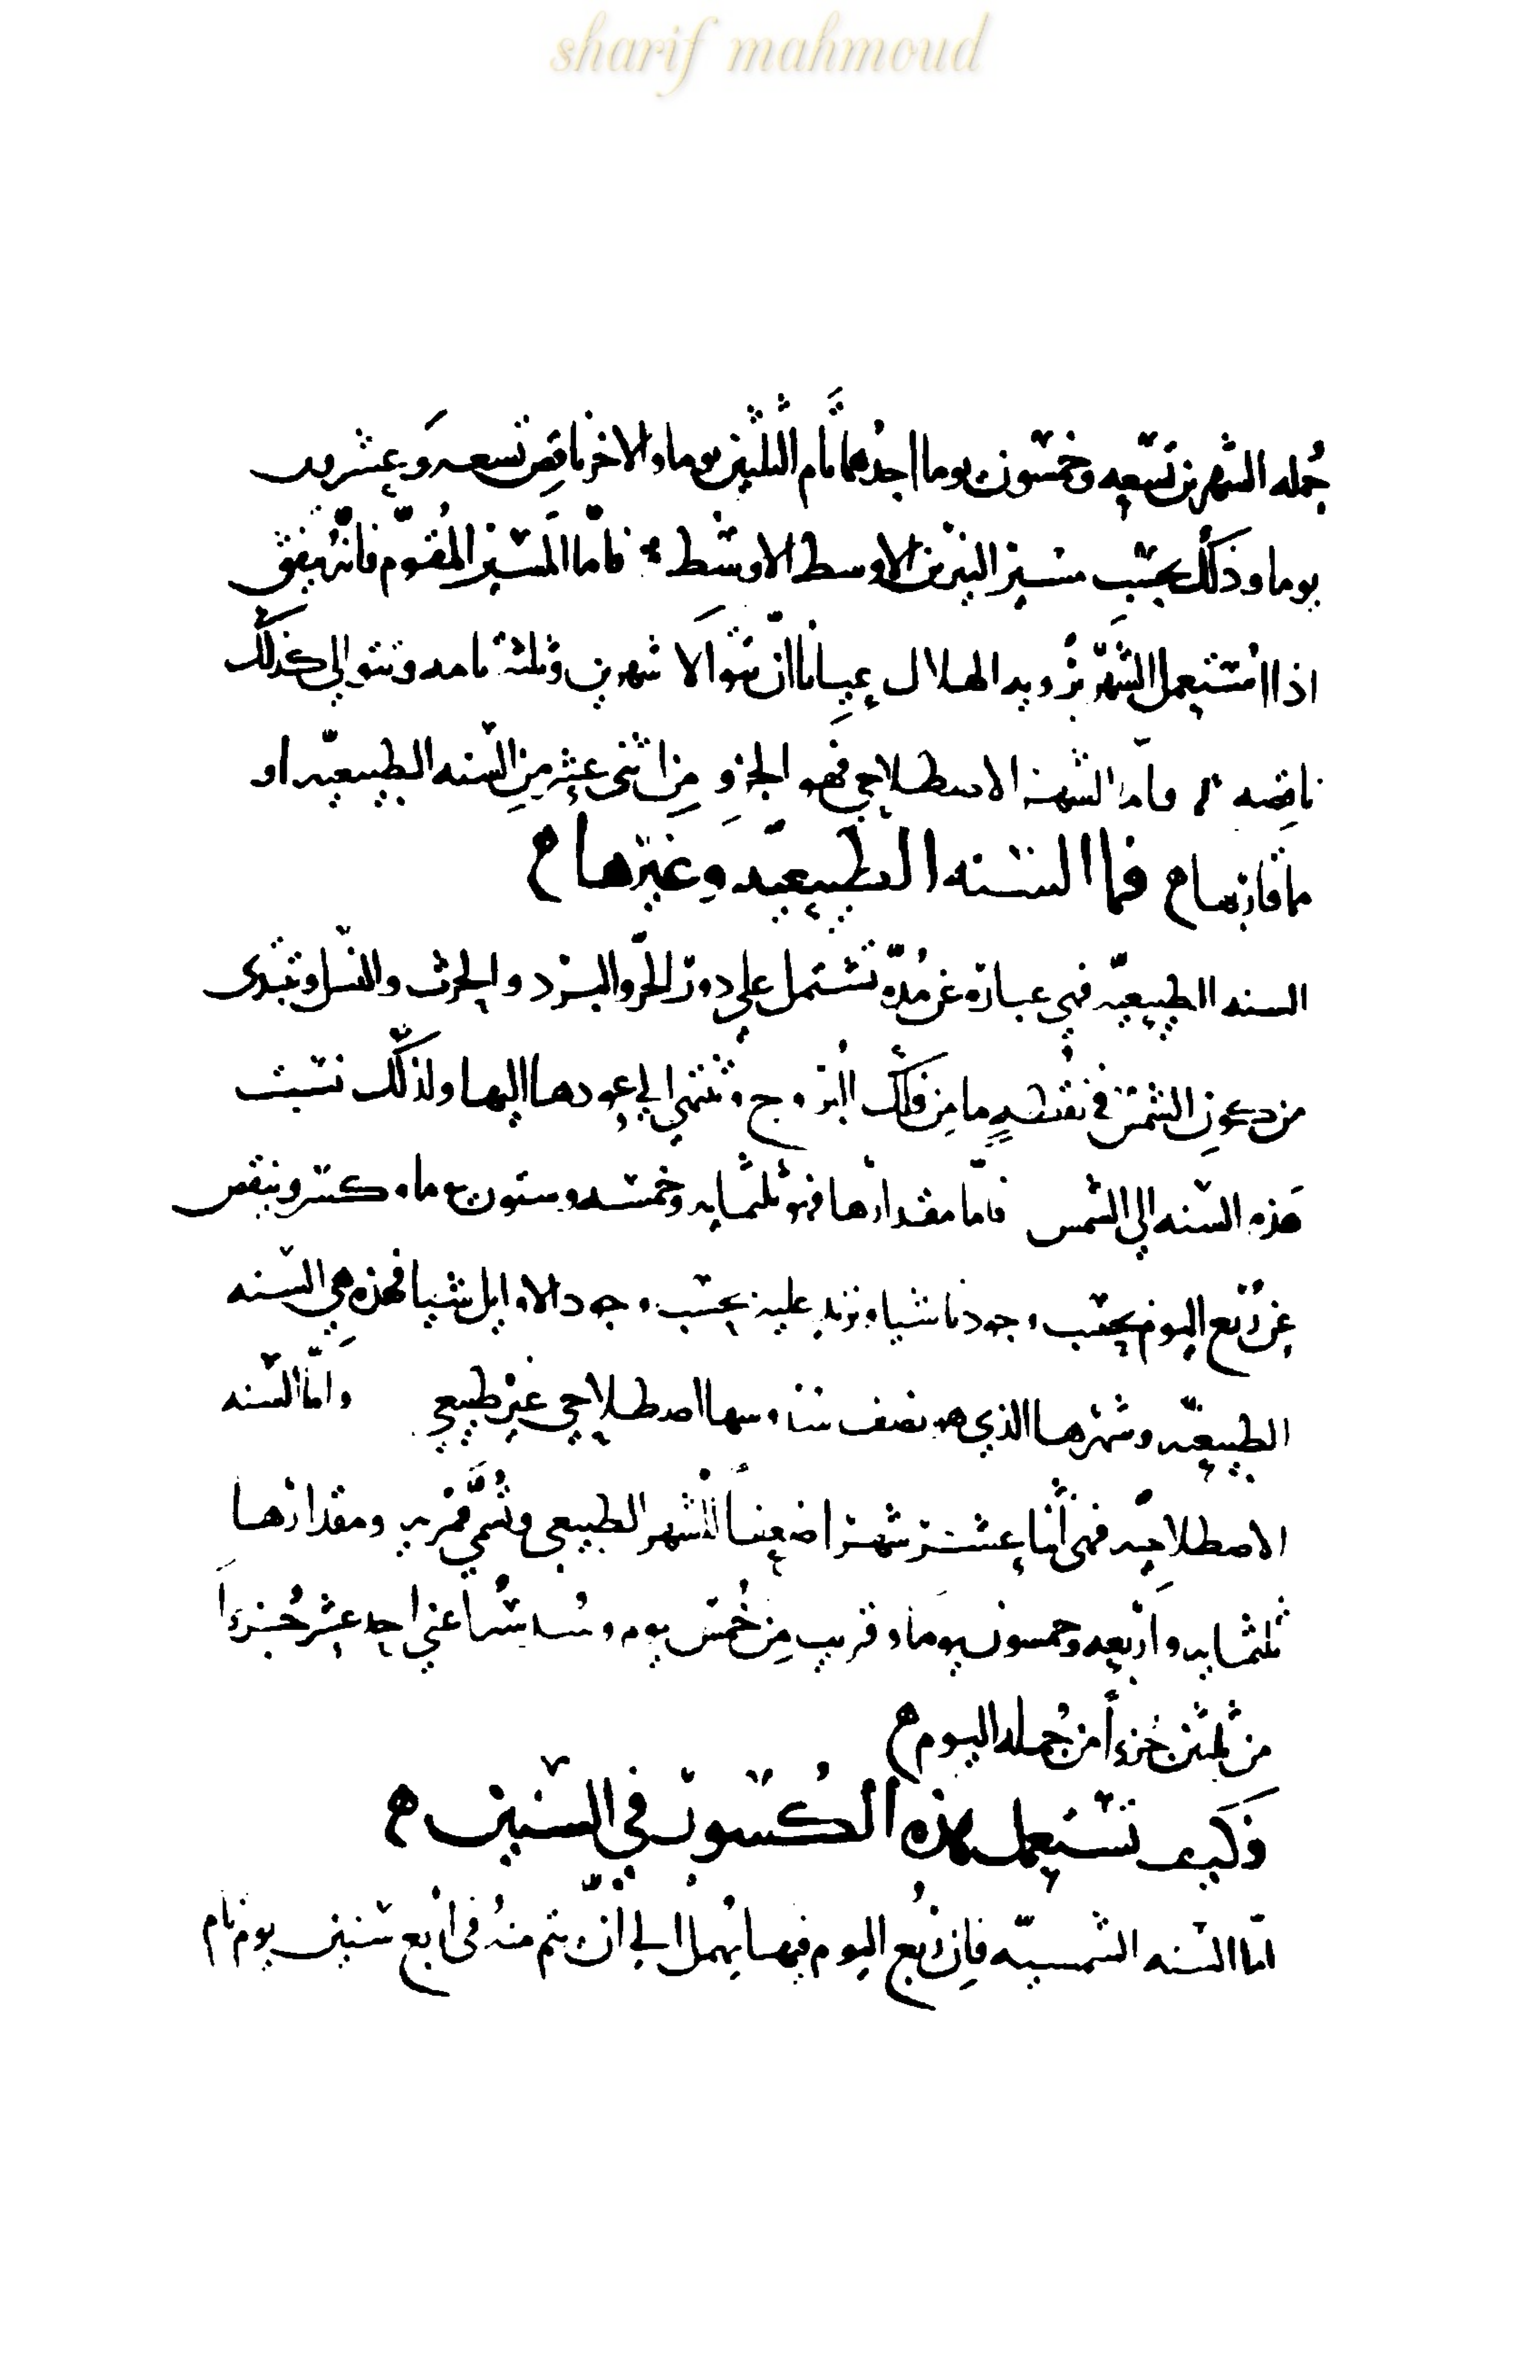 sharif mahmoud
جُمله الشهرين تسعه وخمسون يوما احدهما تام الثلثين يوما والاخر ناقص تسعه وعشرين
يوما وذلك بحسب مسير النيرين الاوسط الاوسط فامّا المسير المُقوّم فانّه يتفق
اذا استعمل الشهر برويه الهلال عيانا ان تتوالا شهرين وثلثة تامه وتتوالي كذلك
ناقصه وامّا الشهر الاصطلاحي فهو الجزو من اثنى عشر من السنه الطبيعيّه او
ما قاربها فما السنه الطبيعيّه وغيرها
السنه الطبيعيّه فهي عبارة عن مُدّه تشتمل علي دور الحرّ والبرد والحرث والنسل وتبتدى
من كون الشمس في نقطهٍ ما من فلك البروج وتنتهي الي عودها اليها ولذلك نسبت
هذه السنه الي الشمس فامّا مقدارها فهو ثلثمايه وخمسه وستون يوما وكسر وينقص
عن رُبع اليوم بحسب وجودنا شيا ويزيد عليه بحسب وجود الاوايل شيا فهذه هي السنه
الطبيعيّه وشهرها الذي هو نصف سدسها اصطلاحي غير طبيعي وامّا السنه
الاصطلاحيّه فهى اثنا عشر شهرا للشهر الطبيعي وتُسمّي قمريه ومقدارها
ثلثمايه واربعه وخمسون يوما وقريب من خُمس يوم وسُدسُه اعني احد عشر جُزءاً
من ثلثين جُزءاً من جُمله اليوم
وكيف تستعمل هذه الكُسور في السنين
امّا السنه الشمسيّه فان رُبع اليوم فيها يُهمل الي ان يتم منهُ في اربع سنين يوم تام